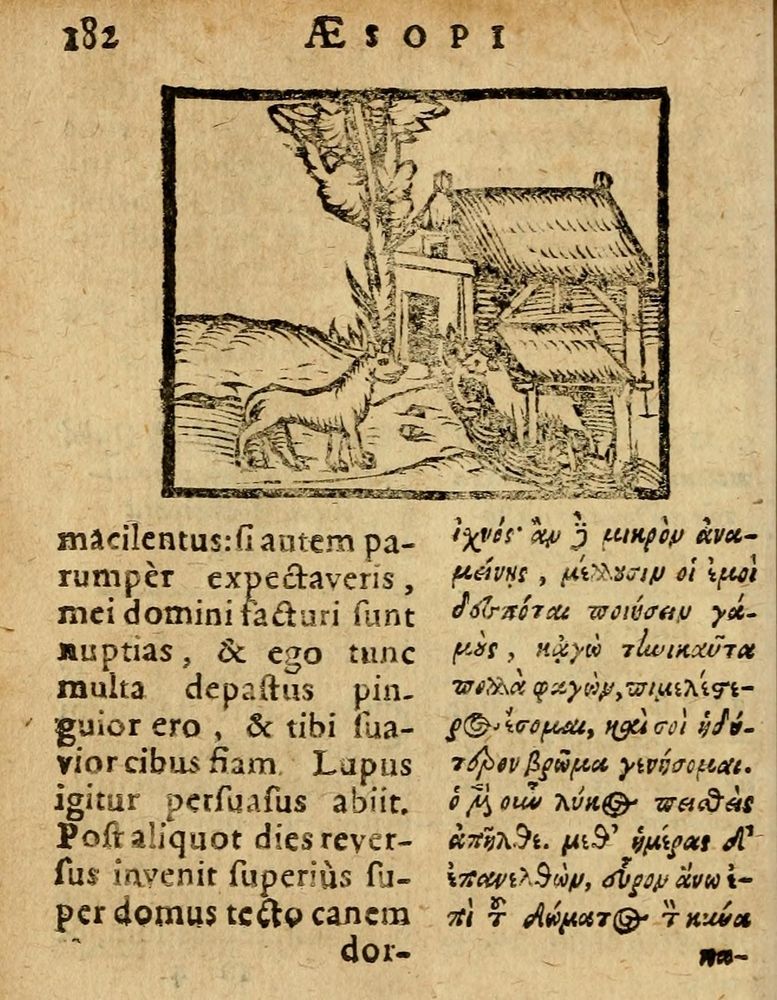 182 ÆSOPI
macilentus: ſi autem pa-
rumpèr expectaveris,
mei domini facturi ſunt
nuptias, & ego tunc
multa depaſtus pin-
guior ero, & tibi ſua-
vior cibus fiam. Lupus
igitur perſuaſus abiit.
Poſt aliquot dies rever-
ſus invenit ſuperiùs ſu-
per domus tecto canem
dor-
ἰχνός· ἂν ϳ μικρὸν ἀνα-
μείνῃς, μέλλουσιν οἱ ἐμοὶ
δεσπόται ποιήσειν γά-
μους, κᾀγὼ τηνικαῦτα
πολλὰ φαγὼν, πιμελέστε-
ρος ἔσομαι, καὶ σοὶ ἡδύ-
τερον βρῶμα γενήσομαι.
ὁ μὲν οὖν λύκος πεισθεὶς
ἀπῆλθε. μεθ' ἡμέρας δ'
ἐπανελθὼν, εὗρον ἄνω ἐ-
πὶ τοῦ δώματος τὸν κύνα
κα-